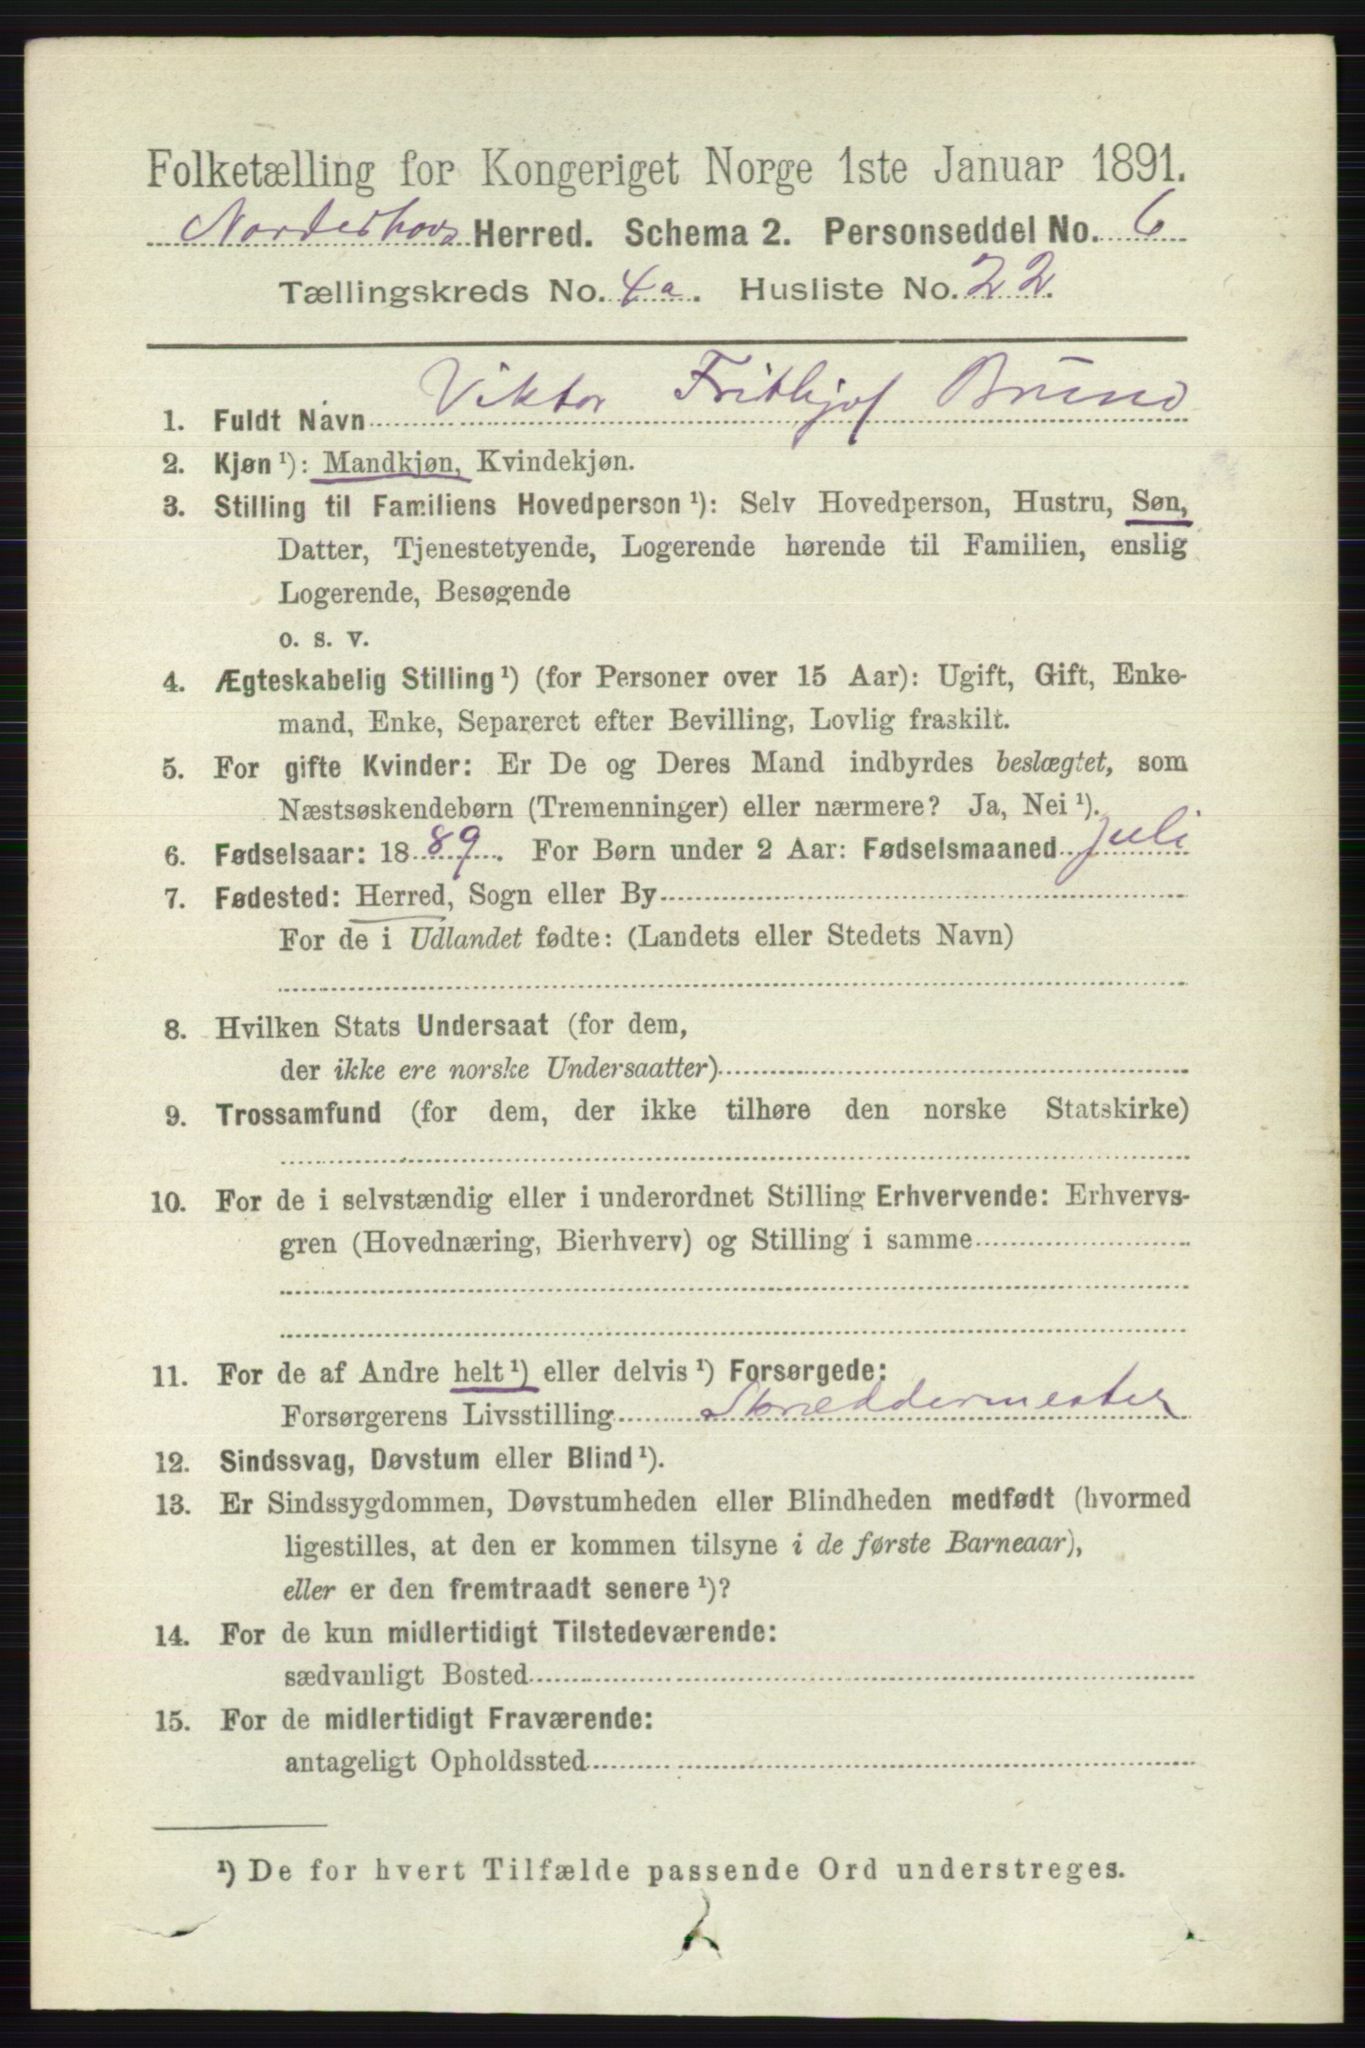 Folketælling for Kongeriget Norge 1ste Januar 1891.
Norderhovs Herred. Schema 2. Personseddel No. 6
Tællingskreds No. 4a. Husliste No. 22.
1. Fuldt Navn Viktor Frithjof Bruno
2. Kjøn ¹): Mandkjøn, Kvindekjøn.
3. Stilling til Familiens Hovedperson ¹): Selv Hovedperson, Hustru, Søn,
Datter, Tjenestetyende, Logerende hørende til Familien, enslig
Logerende, Besøgende
o. s. v.
4. Ægteskabelig Stilling ¹) (for Personer over 15 Aar): Ugift, Gift, Enke-
mand, Enke, Separeret efter Bevilling, Lovlig fraskilt.
5. For gifte Kvinder: Er De og Deres Mand indbyrdes beslægtet, som
Næstsøskendebørn (Tremenninger) eller nærmere? Ja, Nei ¹).
6. Fødselsaar: 1889. For Børn under 2 Aar: Fødselsmaaned Juli
7. Fødested: Herred, Sogn eller By
For de i Udlandet fødte: (Landets eller Stedets Navn)
8. Hvilken Stats Undersaat (for dem,
der ikke ere norske Undersaatter)
9. Trossamfund (for dem, der ikke tilhøre den norske Statskirke)
10. For de i selvstændig eller i underordnet Stilling Erhvervende: Erhvervs-
gren (Hovednæring, Bierhverv) og Stilling i samme
11. For de af Andre helt ¹) eller delvis ¹) Forsørgede:
Forsørgerens Livsstilling Skræddermester
12. Sindssvag, Døvstum eller Blind ¹).
13. Er Sindssygdommen, Døvstumheden eller Blindheden medfødt (hvormed
ligestilles, at den er kommen tilsyne i de første Barneaar),
eller er den fremtraadt senere ¹)?
14. For de kun midlertidigt Tilstedeværende:
sædvanligt Bosted
15. For de midlertidigt Fraværende:
antageligt Opholdssted
¹) De for hvert Tilfælde passende Ord understreges.